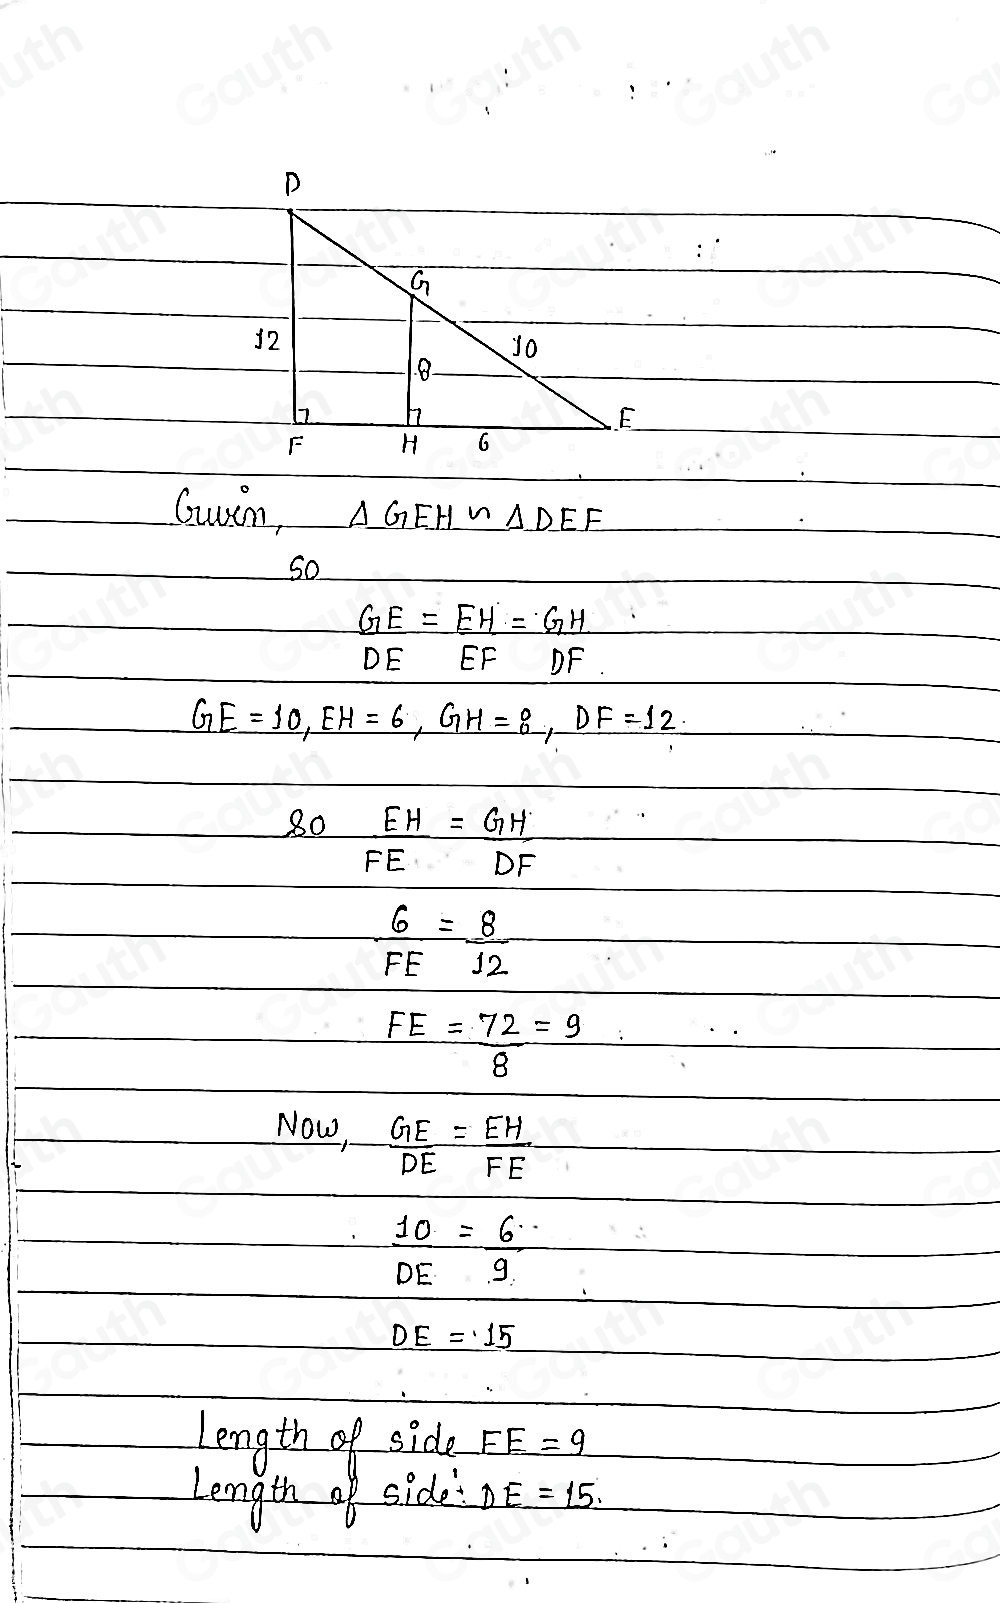 D
G
12
10
8
E
F
H
6
Given, Δ GEH ∽ Δ DEF
So
GE/DE = EH/EF = GH/DF.
GE = 10, EH = 6, GH = 8, DF = 12.
So EH/FE = GH/DF
6/FE = 8/12
FE = 72/8 = 9
Now, GE/DE = EH/FE
10/DE = 6/9
DE = 15
Length of side FE = 9
Length of side DE = 15.
Gauth